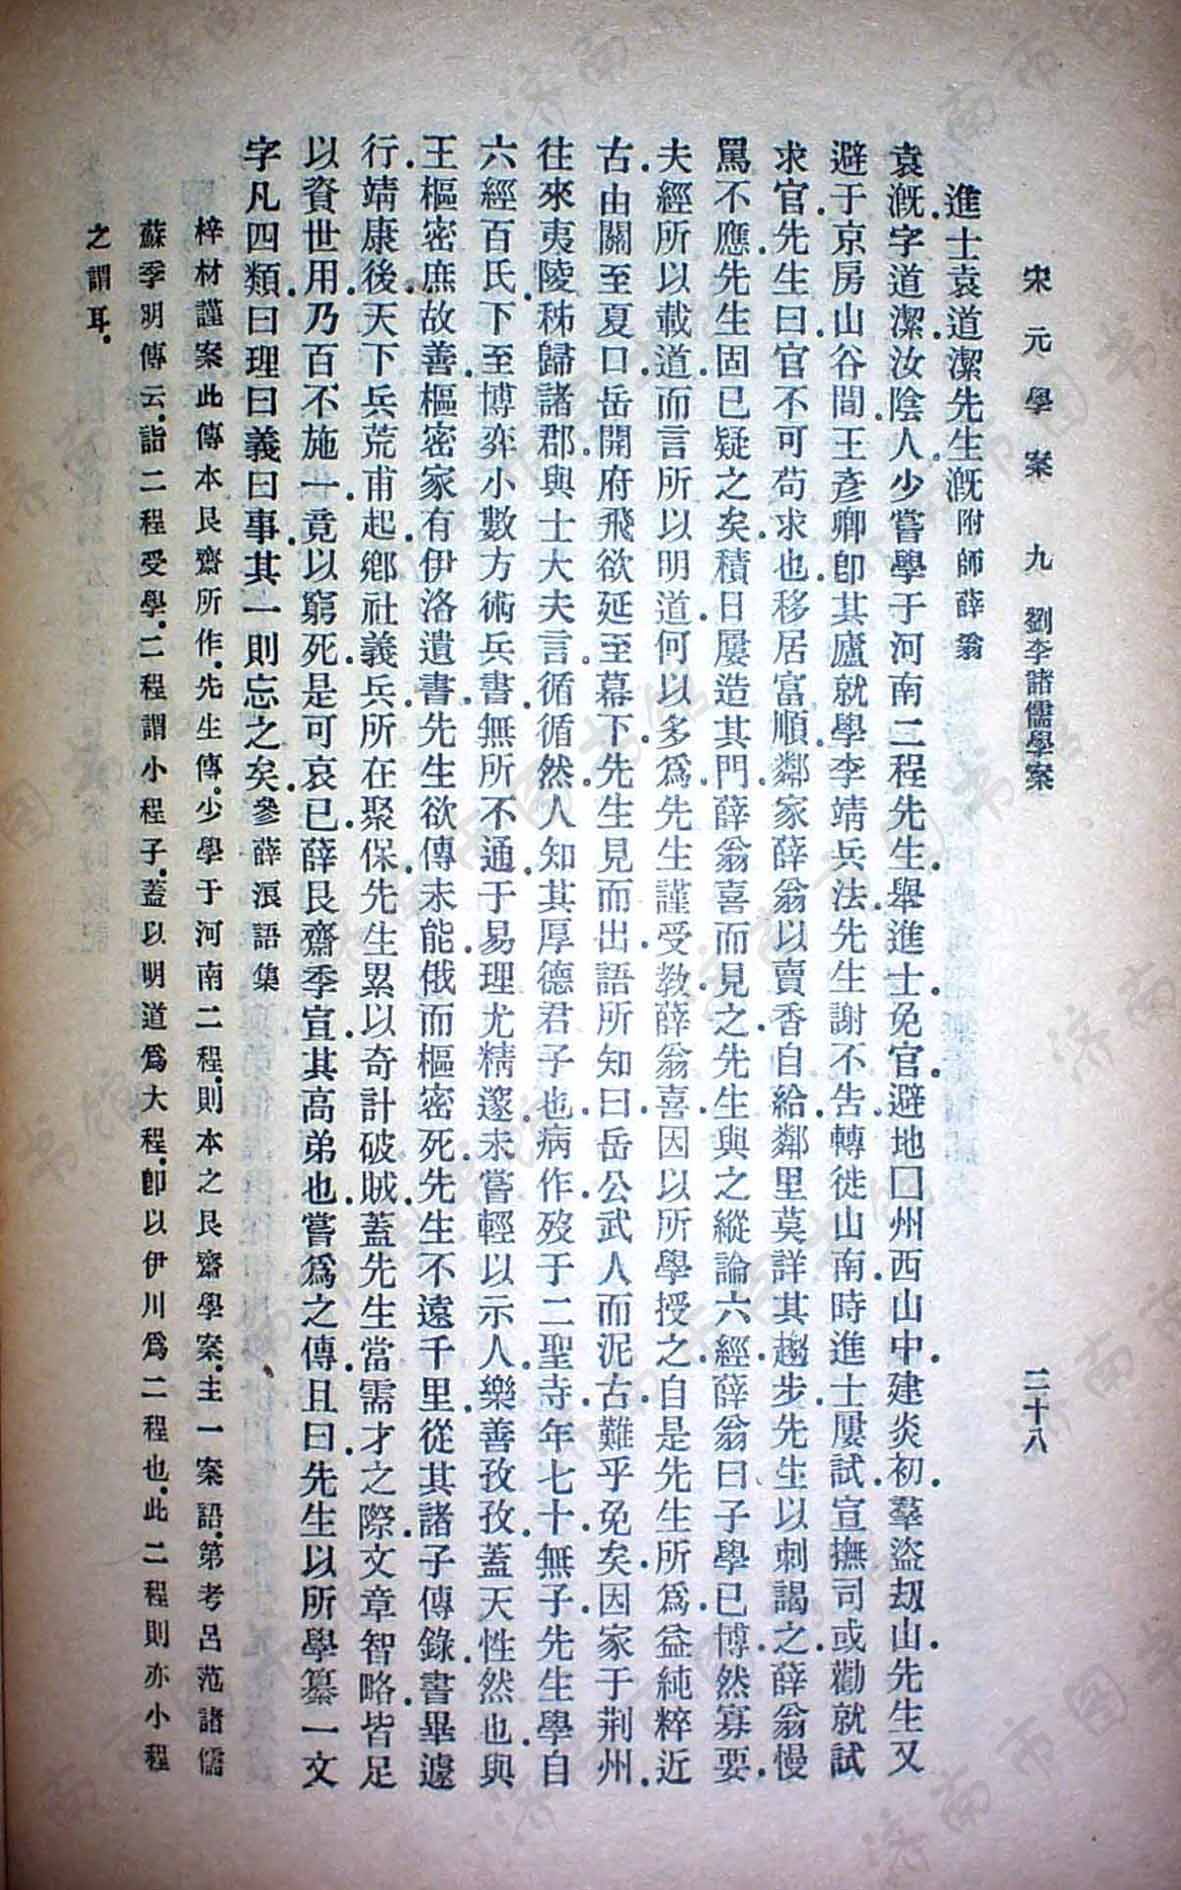 宋元學案 九 劉李諸儒學案 二十八
進士袁道潔先生漑附師薛翁
袁漑.字道潔.汝陰人.少嘗學于河南二程先生.舉進士.免官.避地囗州西山中.建炎初.羣盜刼山.先生又
避于京房山谷間.王彥卿卽其廬就學李靖兵法.先生謝不告.轉徙山南.時進士屢試宣撫司.或勸就試
求官.先生曰.官不可苟求也.移居富順.鄰家薛翁以賣香自給.鄰里莫詳其趨步.先生以刺謁之.薛翁慢
罵不應.先生固已疑之矣.積日屢造其門.薛翁喜而見之.先生與之縱論六經.薛翁曰.子學已博.然寡要.
夫經所以載道.而言所以明道.何以多爲.先生謹受教.薛翁喜.因以所學授之.自是先生所爲益純粹近
古.由關至夏口.岳開府飛欲延至幕下.先生見而出.語所知曰.岳公武人而泥古.難乎免矣.因家于荆州.
往來夷陵秭歸諸郡.與士大夫言.循循然.人知其厚德君子也.病作.歿于二聖寺.年七十.無子.先生學自
六經百氏.下至博弈小數方術兵書.無所不通.于易理尤精邃.未嘗輕以示人.樂善孜孜.蓋天性然也.與
王樞密庶故善.樞密家有伊洛遺書.先生欲傳未能.俄而樞密死.先生不遠千里.從其諸子傳錄.書畢遽
行.靖康後.天下兵荒甫起.鄉社義兵.所在聚保.先生累以奇計破賊.蓋先生當需才之際.文章智略.皆足
以資世用.乃百不施一.竟以窮死.是可哀已.薛艮齋季宣.其高弟也.嘗爲之傳.且曰.先生以所學纂一文
字.凡四類.曰理曰義曰事.其一則忘之矣.參薛浪語集
梓材謹案此傳本艮齋所作.先生傳.少學于河南二程.則本之艮齋學案.主一案語.第考呂范諸儒
蘇季明傳云.詣二程受學.二程謂小程子.蓋以明道爲大程.卽以伊川爲二程也.此二程則亦小程
之謂耳.